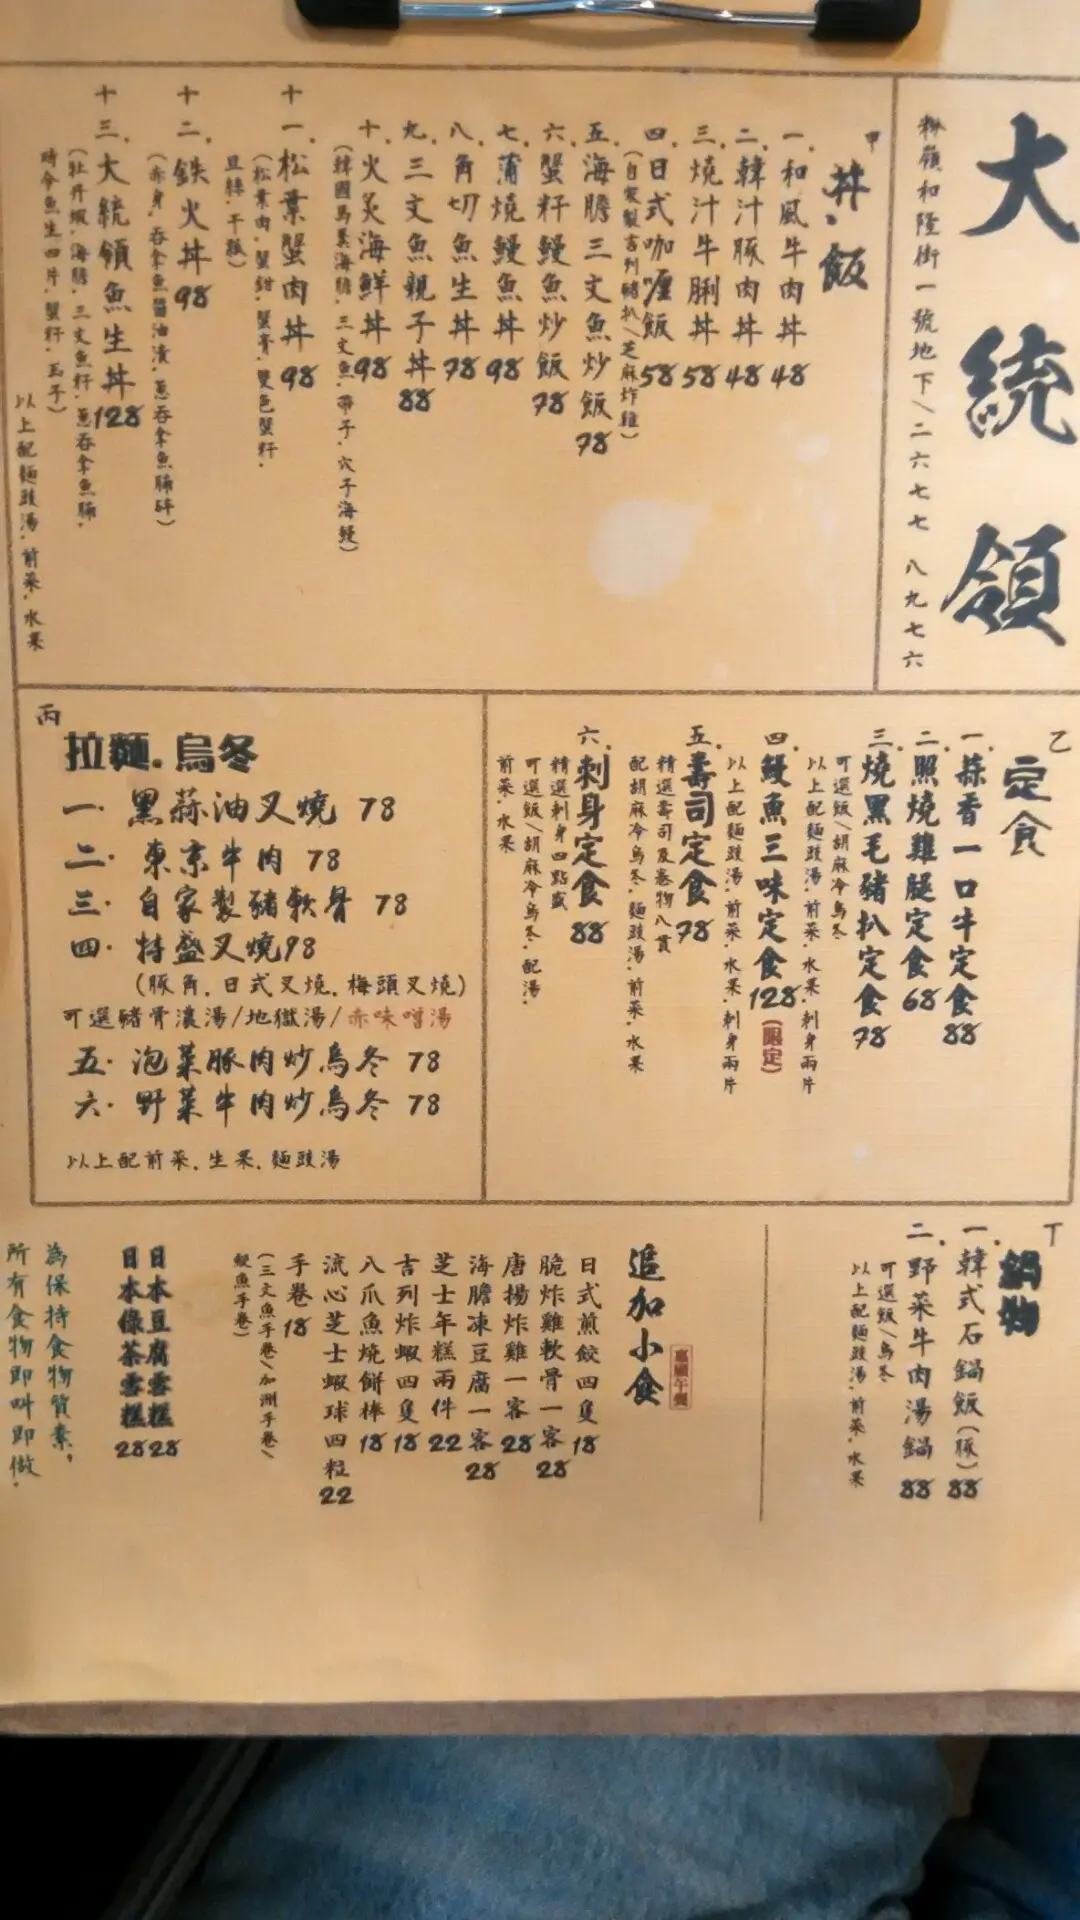 大統領
粉嶺和隆街一號地下/二六七七 八九七六
甲
丼.飯
一.和風牛肉丼48
二.韓汁豚肉丼48
三.燒汁牛脷丼58
四.日式咖喱飯58
(自家製吉列豬扒/芝麻炸雞)
五.海膽三文魚炒飯78
六.蟹籽鰻魚炒飯78
七.蒲燒鰻魚丼98
八.角切魚生丼78
九.三文魚親子丼88
十.火炙海鮮丼98
(韓國馬糞海膽.三文魚.帶子.穴子海鰻)
十一.松葉蟹肉丼98
(松葉肉.蟹鉗.蟹膏.雙色蟹籽.
旦絲.干瓢)
十二.鉄火丼98
(赤身.吞拿魚醬油漬.蔥吞拿魚腩碎)
十三.大統領魚生丼128
(牡丹蝦.海膽.三文魚籽.蔥吞拿魚腩.
時令魚生四片.蟹籽.玉子)
以上配麵豉湯.前菜.水果
乙
定食
一.蒜香一口牛定食88
二.照燒雞腿定食68
三.燒黑毛豬扒定食78
可選飯/胡麻冷烏冬
以上配麵豉湯.前菜.水果.刺身兩片
四.鰻魚三味定食128(限定)
以上配麵豉湯.前菜.水果.刺身兩片
五.壽司定食78
精選壽司及卷物八貫
配胡麻冷烏冬.麵豉湯.前菜.水果
六.刺身定食88
精選刺身四點盛
可選飯/胡麻冷烏冬.配湯.
前菜.水果
丙
拉麵.烏冬
一.黑蒜油叉燒 78
二.東京牛肉 78
三.自家製豬軟骨 78
四.特盛叉燒98
(豚角.日式叉燒.梅頭叉燒)
可選豬骨濃湯/地獄湯/赤味噌湯
五.泡菜豚肉炒烏冬 78
六.野菜牛肉炒烏冬 78
以上配前菜.生果.麵豉湯
丁
鍋物
一.韓式石鍋飯(豚)88
二.野菜牛肉湯鍋 88
可選飯/烏冬
以上配麵豉湯.前菜.水果
追加小食
惠顧午餐
日式煎餃四隻18
脆炸雞軟骨一客28
唐揚炸雞一客28
海膽凍豆腐一客28
芝士年糕兩件22
吉列炸蝦四隻18
八爪魚燒餅棒18
流心芝士蝦球四粒22
手卷18
(三文魚手卷/加洲手卷/
鰻魚手卷)
日本豆腐雪糕28
日本綠茶雪糕28
為保持食物質素,
所有食物即叫即做.